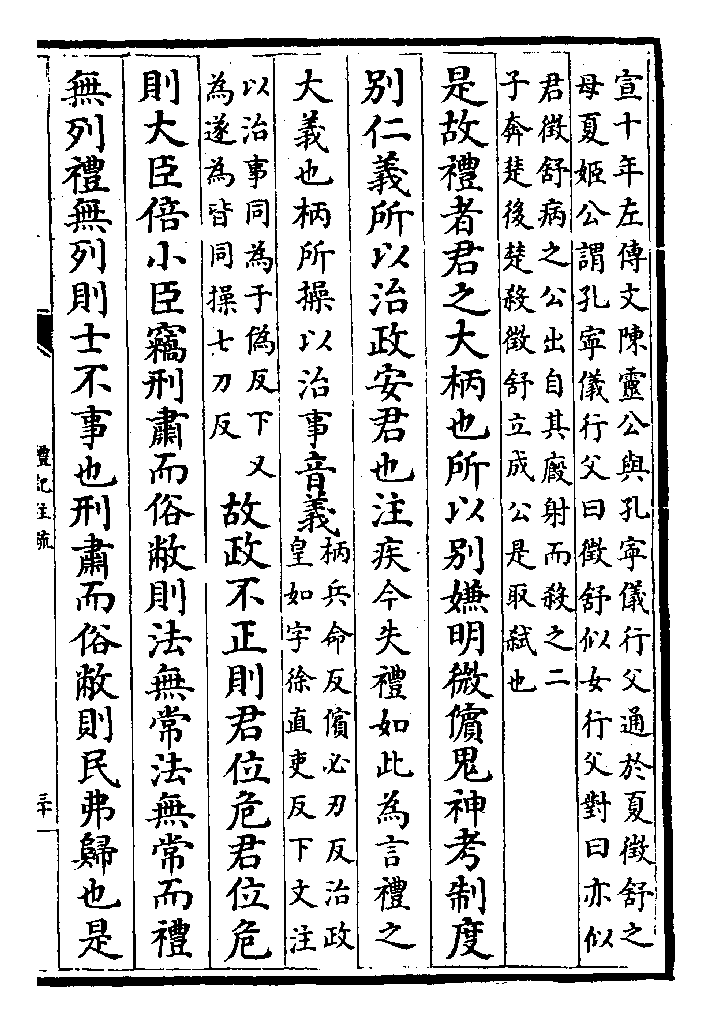 宣十年左傳文陳靈公與孔寧儀行父通於夏徵舒之
母夏姬公謂孔寧儀行父曰徵舒似女行父對曰亦似
君徵舒病之公出自其廄射而殺之二
子奔楚後楚殺徵舒立成公是取弑也
是故禮者君之大柄也所以别嫌明微儐鬼神考制度
别仁義所以治政安君也注疾今失禮如此為言禮之
大義也柄所操以治事音義
柄兵命反儐必刃反治政
皇如字徐直吏反下文注
以治事同為于偽反下又
為遂為皆同操七刀反
故政不正則君位危君位危
則大臣倍小臣竊刑肅而俗敝則法無常法無常而禮
無列禮無列則士不事也刑肅而俗敝則民弗歸也是
禮記注疏
三十